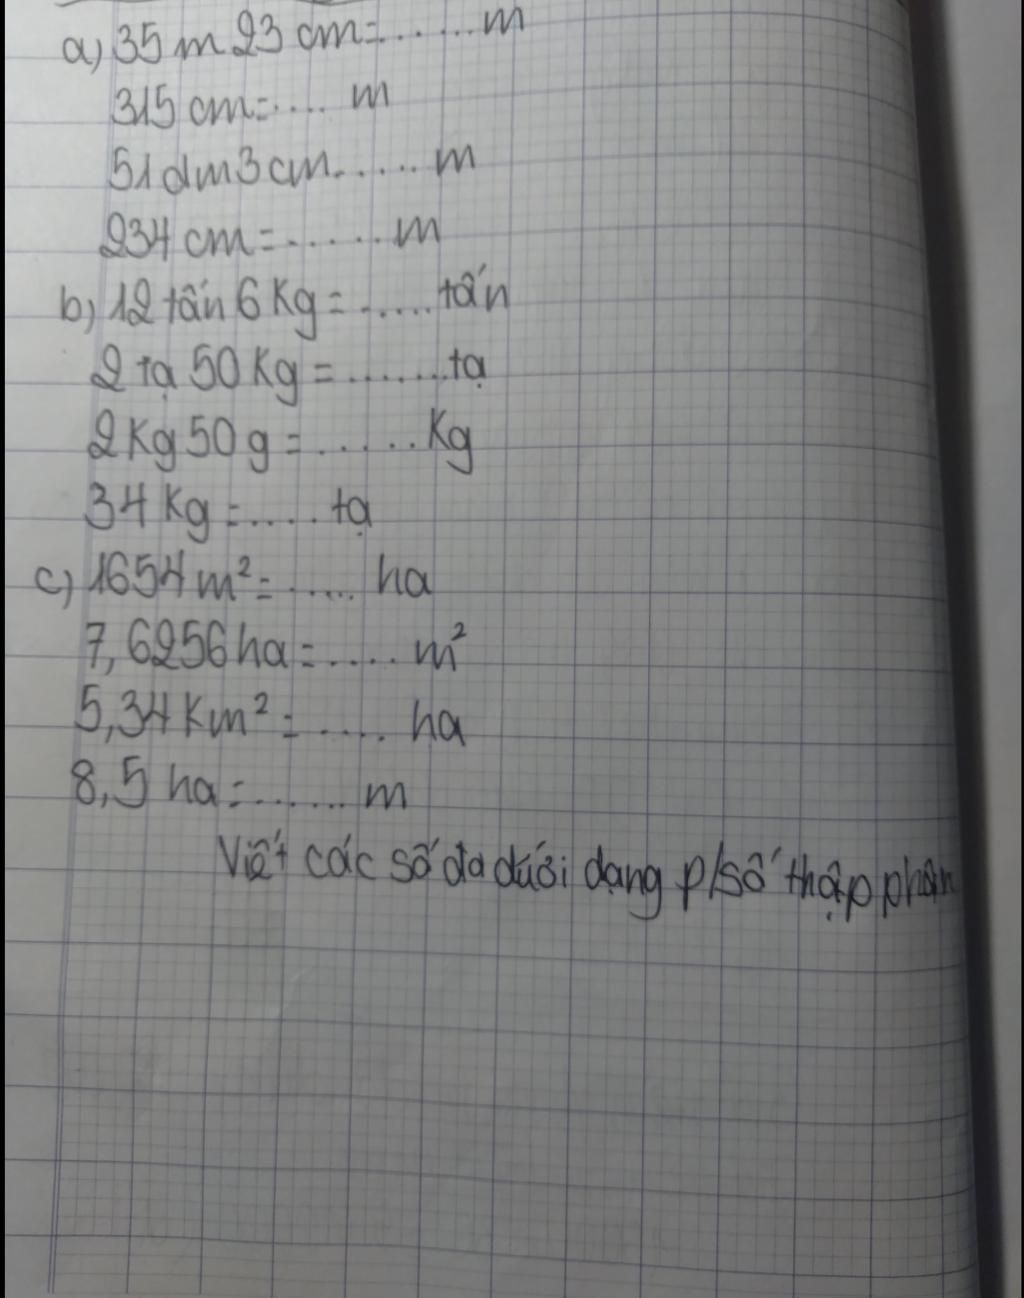 a) 35 m 23 cm = ...... m
315 cm = .... m
51 dm 3 cm ...... m
234 cm = ...... m
b) 12 tấn 6 Kg = ..... tấn
2 tạ 50 Kg = ....... tạ
2 Kg 50 g = ...... Kg
34 Kg = ..... tạ
c) 1654 m² = ..... ha
7,6256 ha = ..... m²
5,34 Km² = ..... ha
8,5 ha = ...... m
Viết các số đo dưới dạng p/số thập phân